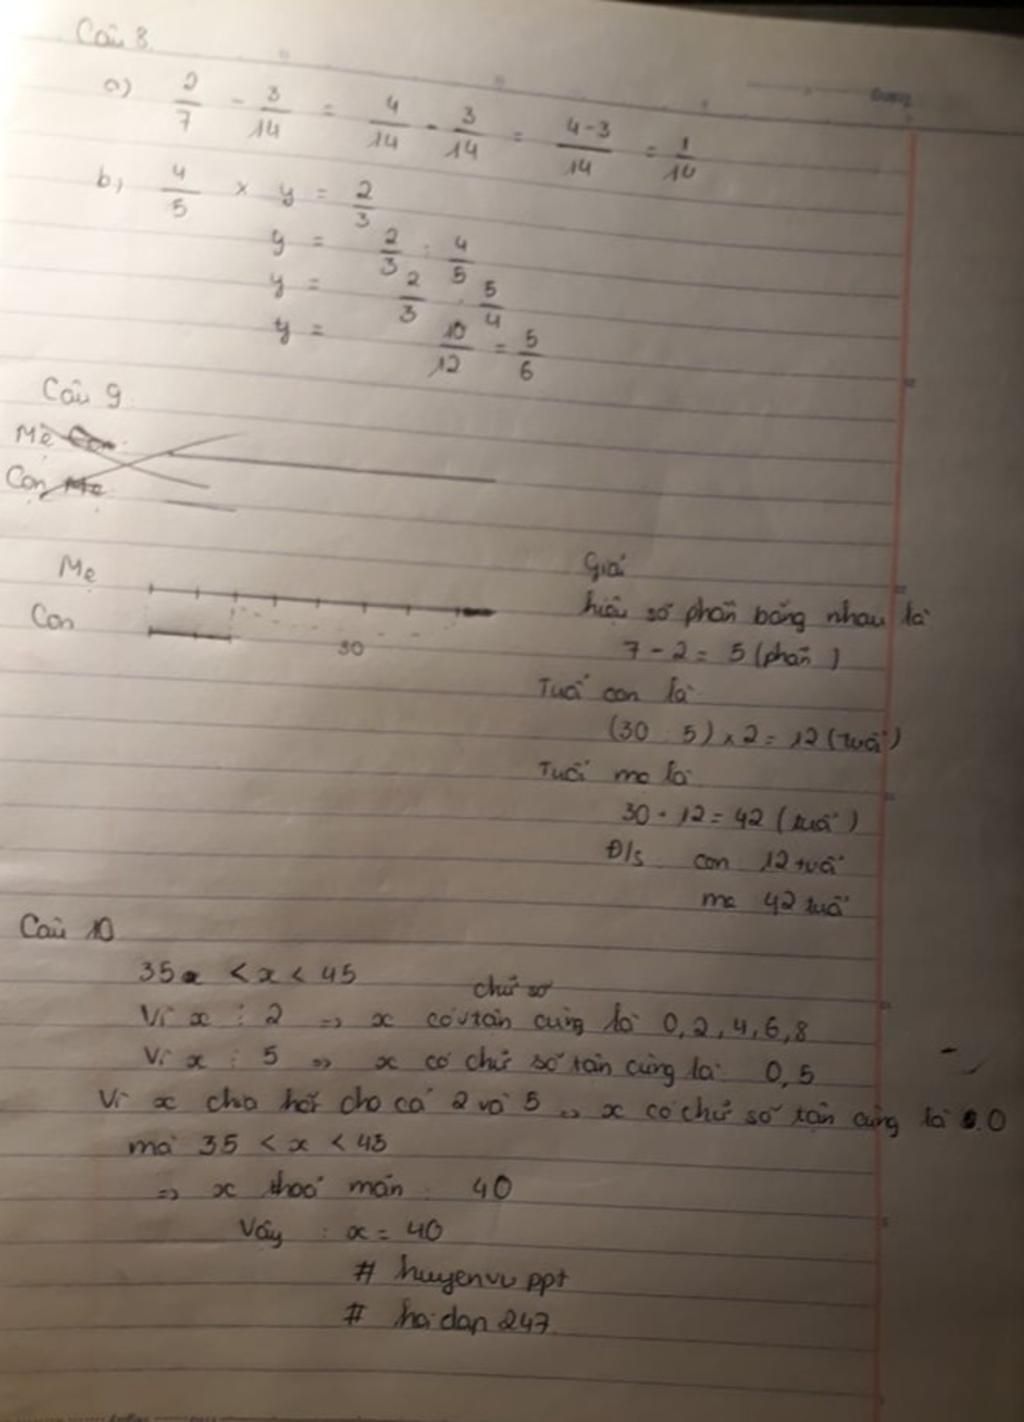 Câu 8.
a) 2/7 - 3/14 = 4/14 - 3/14 = 4-3/14 = 1/14
b) 4/5 × y = 2/3
y = 2/3 : 4/5
y = 2/3 . 5/4
y = 10/12 = 5/6
Câu 9
Mẹ
Con
Mẹ
Con
30
Giải
hiệu số phần bằng nhau là
7 - 2 = 5 (phần)
Tuổi con là
(30 : 5) × 2 = 12 (tuổi)
Tuổi mẹ là
30 + 12 = 42 (tuổi)
Đ/s con 12 tuổi
mẹ 42 tuổi
Câu 10
35 < x < 45
Vì x ⋮ 2 => x có chữ số tận cùng là 0, 2, 4, 6, 8
Vì x ⋮ 5 => x có chữ số tận cùng là 0, 5
Vì x chia hết cho cả 2 và 5 => x có chữ số tận cùng là 0
mà 35 < x < 45
=> x thoả mãn : 40
Vậy : x = 40
# huyenvuppt
# hoidap247